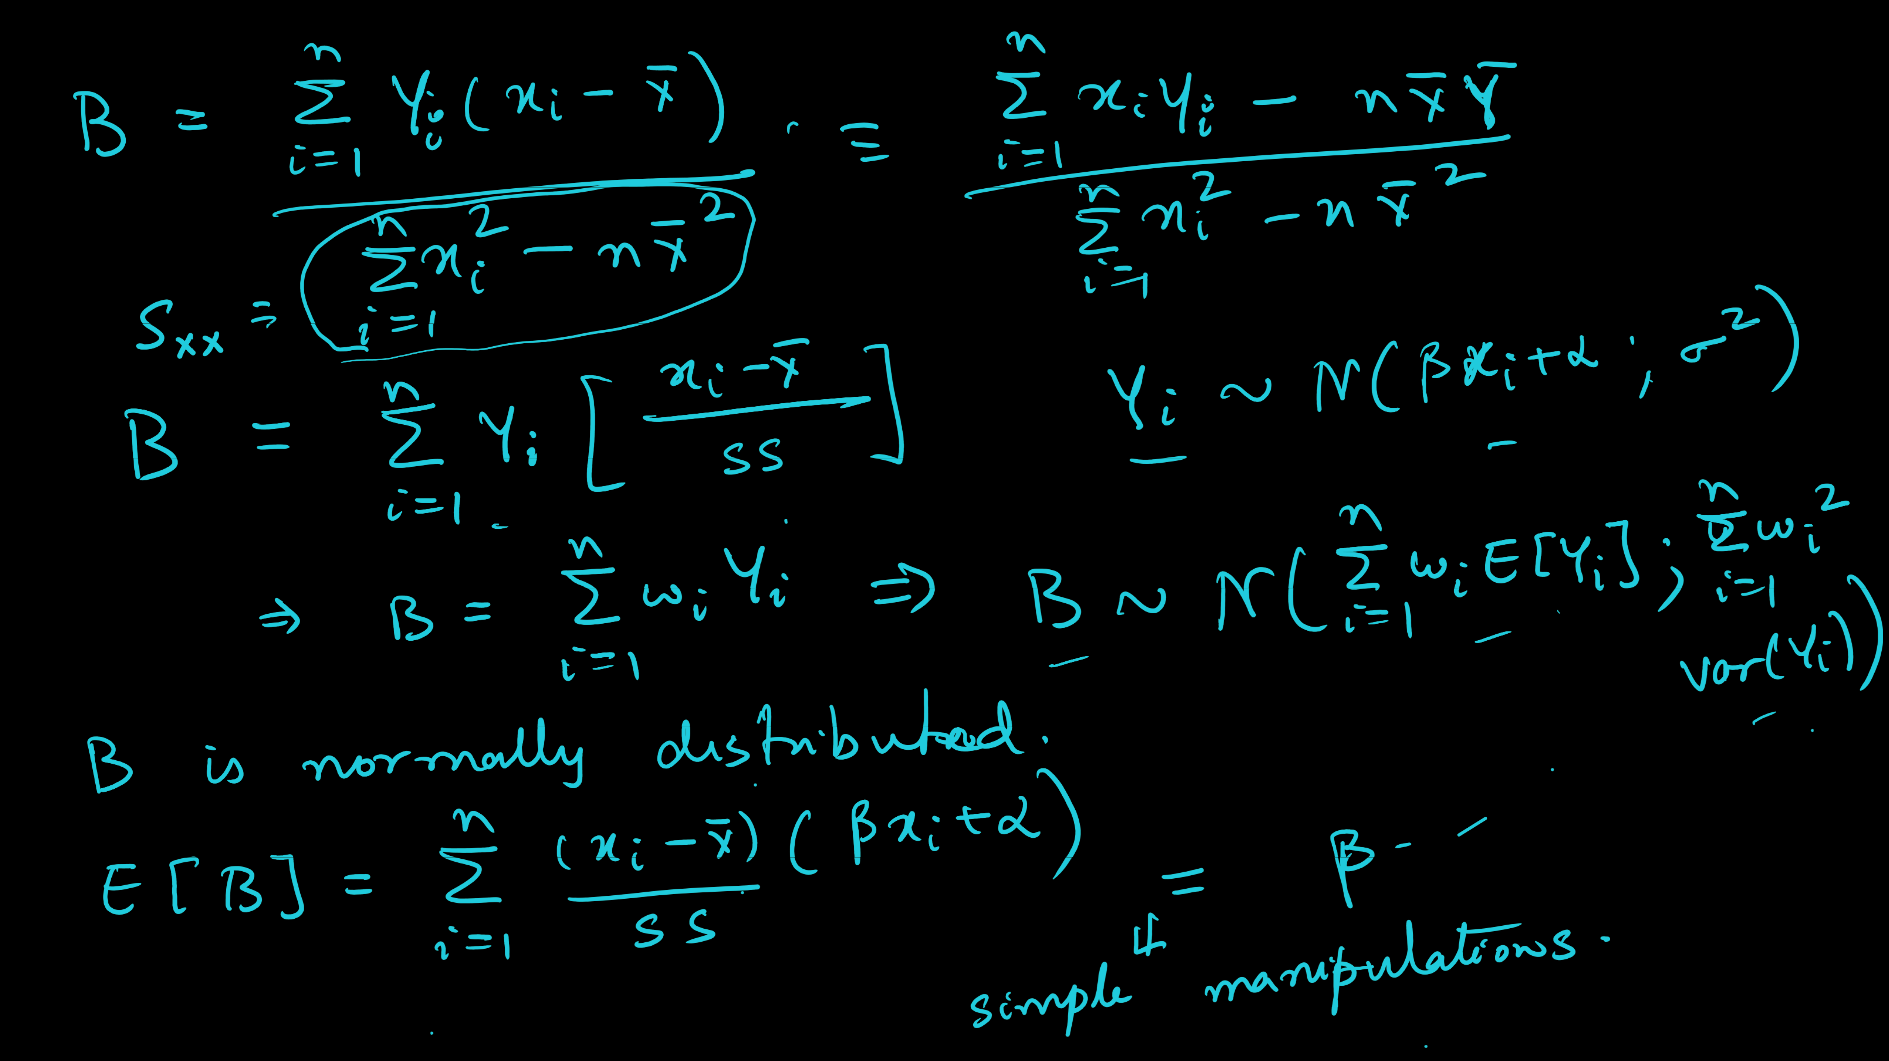 B = \frac{\sum_{i=1}^{n} Y_i (x_i - \bar{x})}{\sum_{i=1}^{n} x_i^2 - n\bar{x}^2} ≡ \frac{\sum_{i=1}^{n} x_i Y_i - n\bar{x}\bar{Y}}{\sum_{i=1}^{n} x_i^2 - n\bar{x}^2}
S_{xx} =
B = \sum_{i=1}^{n} Y_i [\frac{x_i - \bar{x}}{SS}] Y_i ~ N(βx_i + α ; σ^2)
⇒ B = \sum_{i=1}^{n} w_i Y_i ⇒ B ~ N(\sum_{i=1}^{n} w_i E[Y_i] ; \sum_{i=1}^{n} w_i^2 var(Y_i))
B is normally distributed.
E[B] = \sum_{i=1}^{n} \frac{(x_i - \bar{x})}{SS} (βx_i + α) = β
simple manipulations.